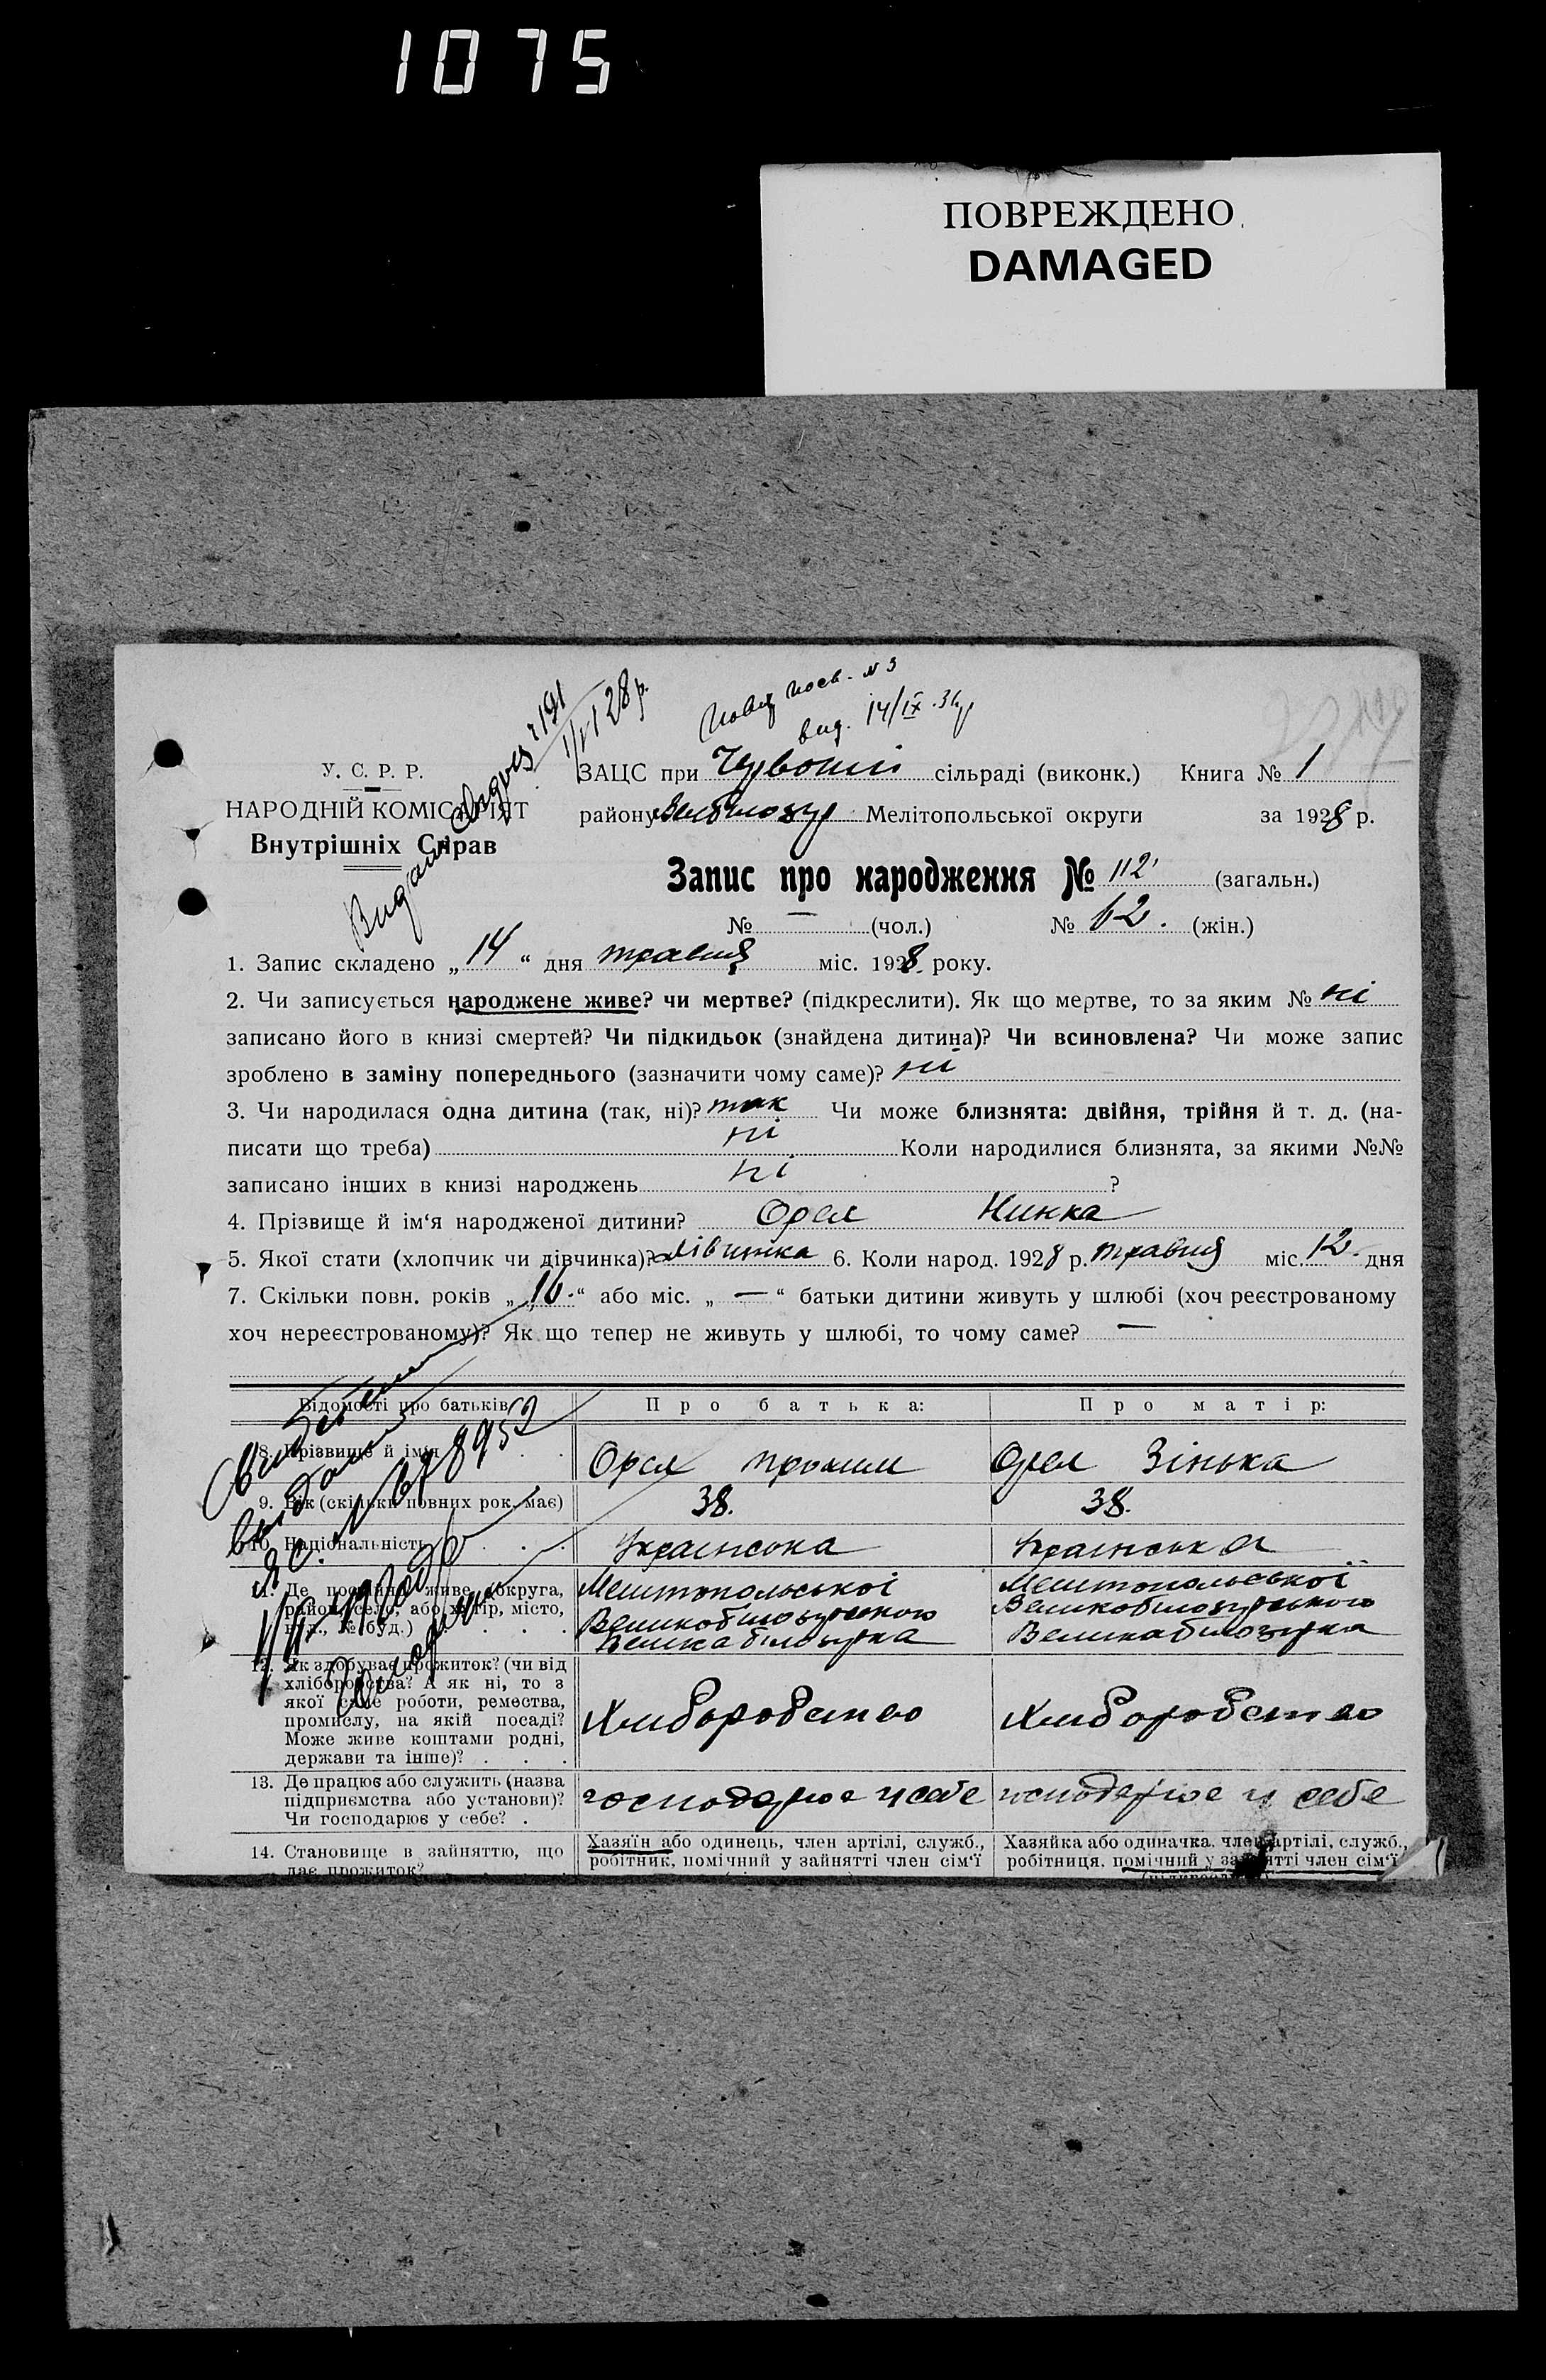 1075
ПОВРЕЖДЕНО
DAMAGED
Нове посв. N 3
вид. 14/IX.
У. С. Р. Р.
НАРОДНІЙ КОМІСАРІЯТ
Внутрішніх Справ
Видана
ЗАЦС при Червоній сільраді (виконк.) Книга № 1
району Мелітопольської округи за 1928 р.
Запис про народження № 112 (загальн.)
№ — (чол.) № 62. (жін.)
1. Запис складено „ 14 “ дня травня міс. 1928 року.
2. Чи записується народжене живе? чи мертве? (підкреслити). Як що мертве, то за яким № ні
записано його в книзі смертей? Чи підкидьок (знайдена дитина)? Чи всиновлена? Чи може запис
зроблено в заміну попереднього (зазначити чому саме)? ні
3. Чи народилася одна дитина (так, ні)? так Чи може близнята: двійня, трійня й т. д. (на-
писати що треба) ні Коли народилися близнята, за якими №№
записано інших в книзі народжень ні ?
4. Прізвище й ім‘я народженої дитини? Орел Нинка
5. Якої стати (хлопчик чи дівчинка)? дівчинка 6. Коли народ. 1928 р. травня міс. 12. дня
7. Скільки повн. років „ 16. “ або міс. „ — “ батьки дитини живуть у шлюбі (хоч реєстрованому
хоч нереєстрованому)? Як що тепер не живуть у шлюбі, то чому саме? —
Відомості про батьків Про батька: Про матір:
8. Прізвище й імя Орел Орел Зінька
9. Вік (скільки повних рок. має) 38. 38.
10. Національність Українська Українська
11. Де постійно живе (округа, Мелітопольської Мелітопольської
район, село, або хутір, місто, Великобілозурського Великобілозурського
вул., № буд.) Великабілозурка Великабілозурка
12. Як здобуває прожиток? (чи від
хліборобства? А як ні, то з
якої саме роботи, ремества,
промислу, на якій посаді? Хліборобство Хліборобство
Може живе коштами родні,
держави та інше)?
13. Де працює або служить (назва
підприємства або установи)? господарює у себе господарює у себе
Чи господарює у себе?
14. Становище в зайняттю, що Хазяїн або одинець, член артілі, служб., Хазяйка або одиначка, член артілі, служб.,
дає прожиток? робітник, помічний у зайнятті член сім‘ї робітниця, помічний у зайнятті член сім‘ї